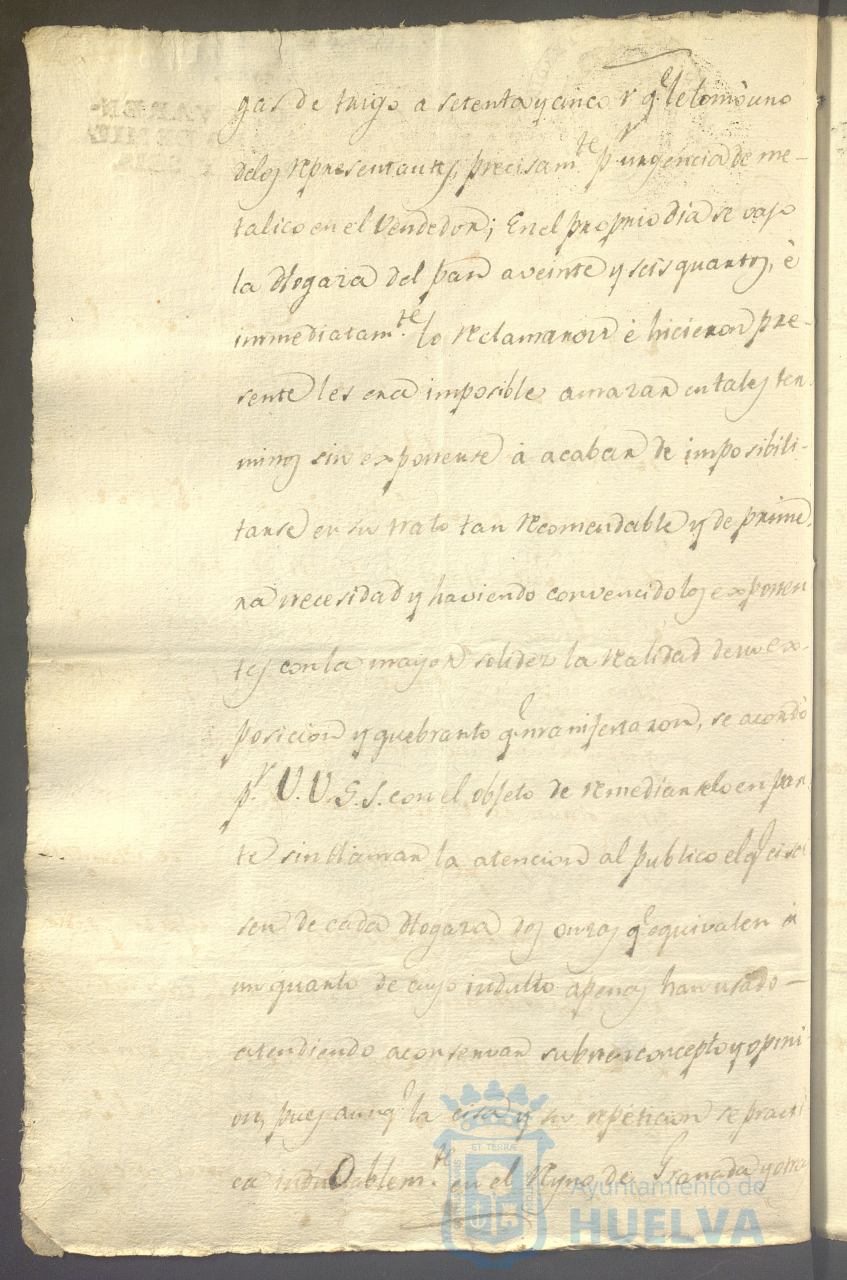 gas de trigo a setenta y cinco r.s q.e le tomò uno
delos representantes, precisam.te p.r urgencia de me-
talico en el Vendedor; En el proprio dia se vajo
la Hogaza del pan a veinte y seis quartos, è
immediatam.te lo reclamaron è hicieron pre-
sente les era imposible amazar en tales ter-
minos sin exponerse à acabar de imposibili-
tarse en su trato tan recomendable y de prime-
ra necesidad y haviendo convencido los exponen
tes con la mayor solidez la realidad de su ex-
posicion y quebranto q.e manifestaron, se acordò
p.r V.V.S.S. con el objeto de remediarselo en par-
te sin llamar la atencion al publico el q.e cisa
sen de cada Hogaza dos onzas q.e equivalen à
un quarto de cuyo indulto apenas han usado-
atendiendo a conservar su buen concepto y opini
on, pues aunq.e la cisa y su repeticion se practi
ca indudablem.te en el Reyno de Granada y otra
Ayuntamiento de
HUELVA